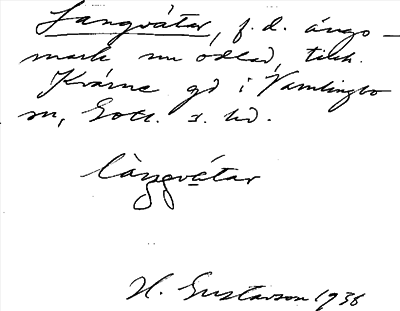 Langvátar, f. d. ängs-
mark nu odlad, tillh.
Kvarne gd i Vamlingbo
sn, Gotl. s. hd.
làŋgvátar
H. Gustavson 1938